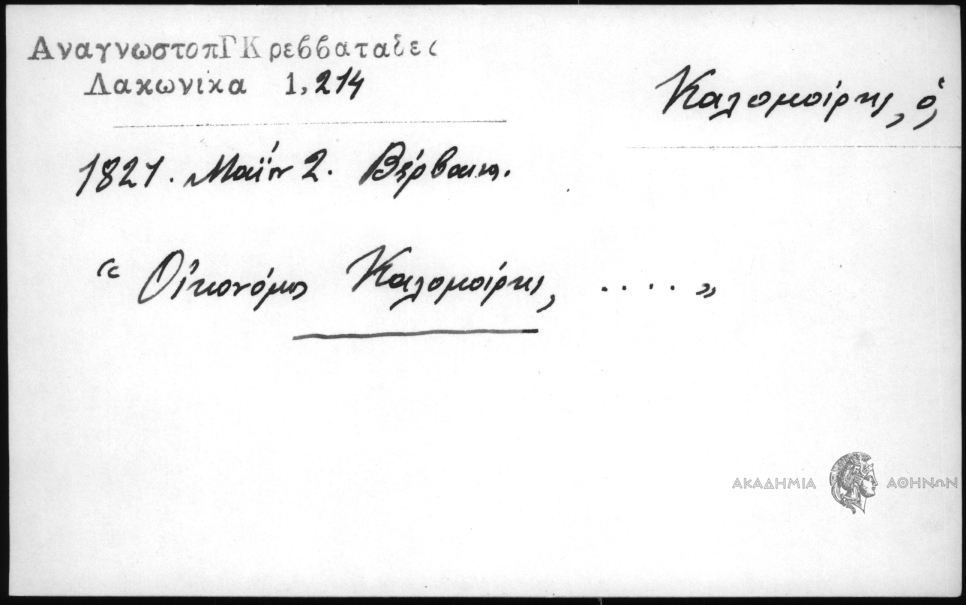 ΑναγνωστοπΓΚρεββαταδες
Λακωνικα 1,214
Καλομοίρης, ὁ,
1821. Μαΐου 2. Βέρβαινα.
“ Οἰκονόμος Καλομοίρης, .... „
ΑΚΑΔΗΜΙΑ ΑΘΗΝΩΝ